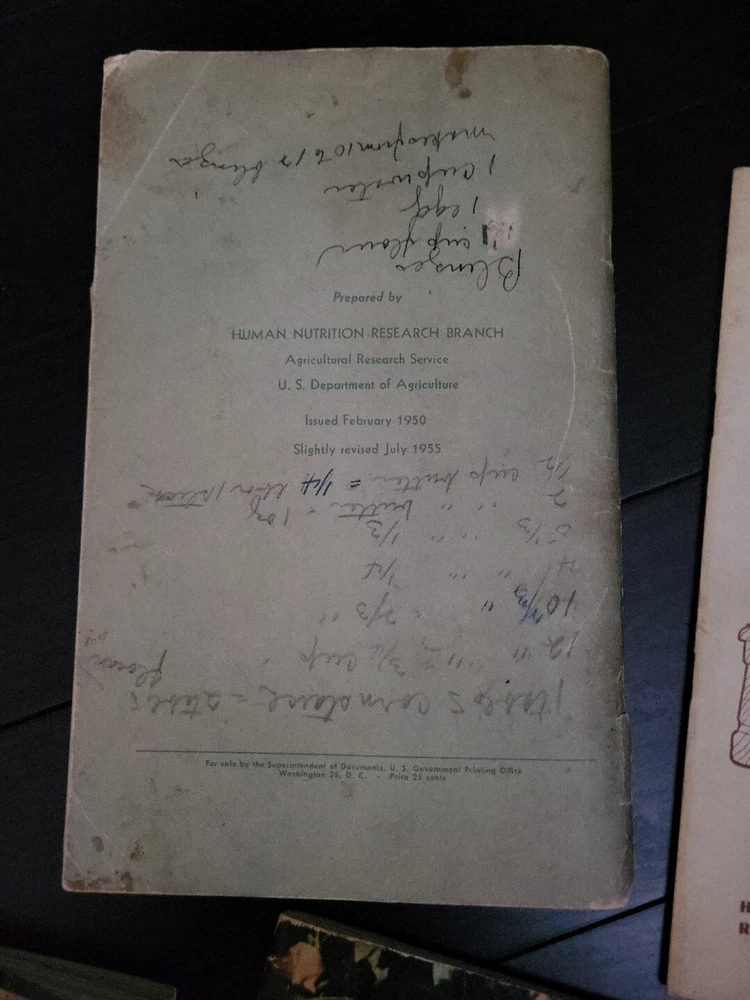 Blinzes
1 cup flour
1 egg
1 cup water
makes from 10 to 12 blinzes
Prepared by
HUMAN NUTRITION RESEARCH BRANCH
Agricultural Research Service
U. S. Department of Agriculture
Issued February 1950
Slightly revised July 1955
1 tabls cornstarch = 2 tabls flour
12 " " = 3/4 cup
10 2/3 " = 2/3 "
4 " " 1/4
5 1/3 " " 1/3
2 " " butter = 1 oz
1/2 cup butter = 1/4
For sale by the Superintendent of Documents, U. S. Government Printing Office
Washington 25, D. C. - Price 25 cents
H
R